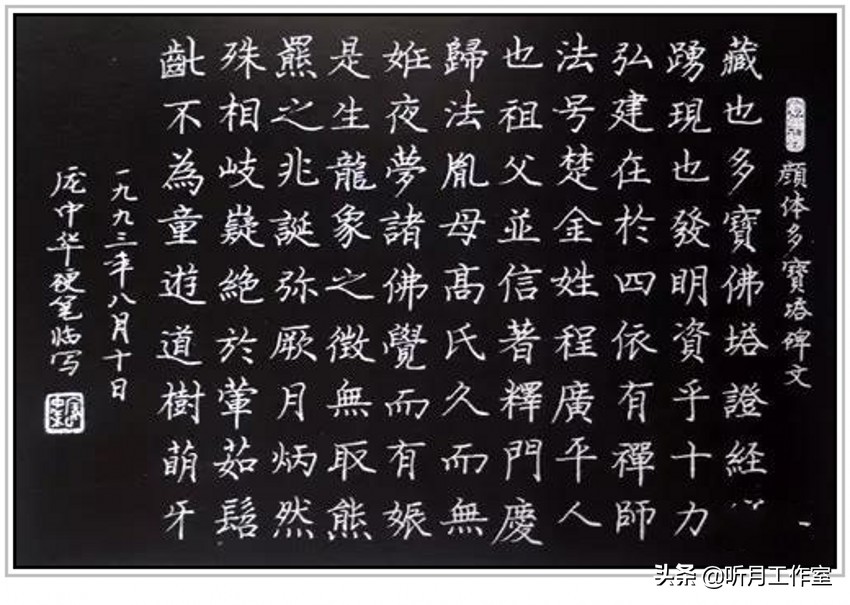 顔体多寶塔碑文
藏也多寶佛塔證経
踴現也發明資乎十力
弘建在於四依有禪師
法号楚金姓程廣平人
也祖父並信著釋門慶
歸法胤母高氏久而無
姙夜夢諸佛覺而有娠
是生龍象之徵無取熊
羆之兆誕弥厥月炳然
殊相岐嶷絶於葷茹髫
齔不為童遊道樹萌牙
一九九三年八月十日
庞中华硬笔临写
头条 @听月工作室